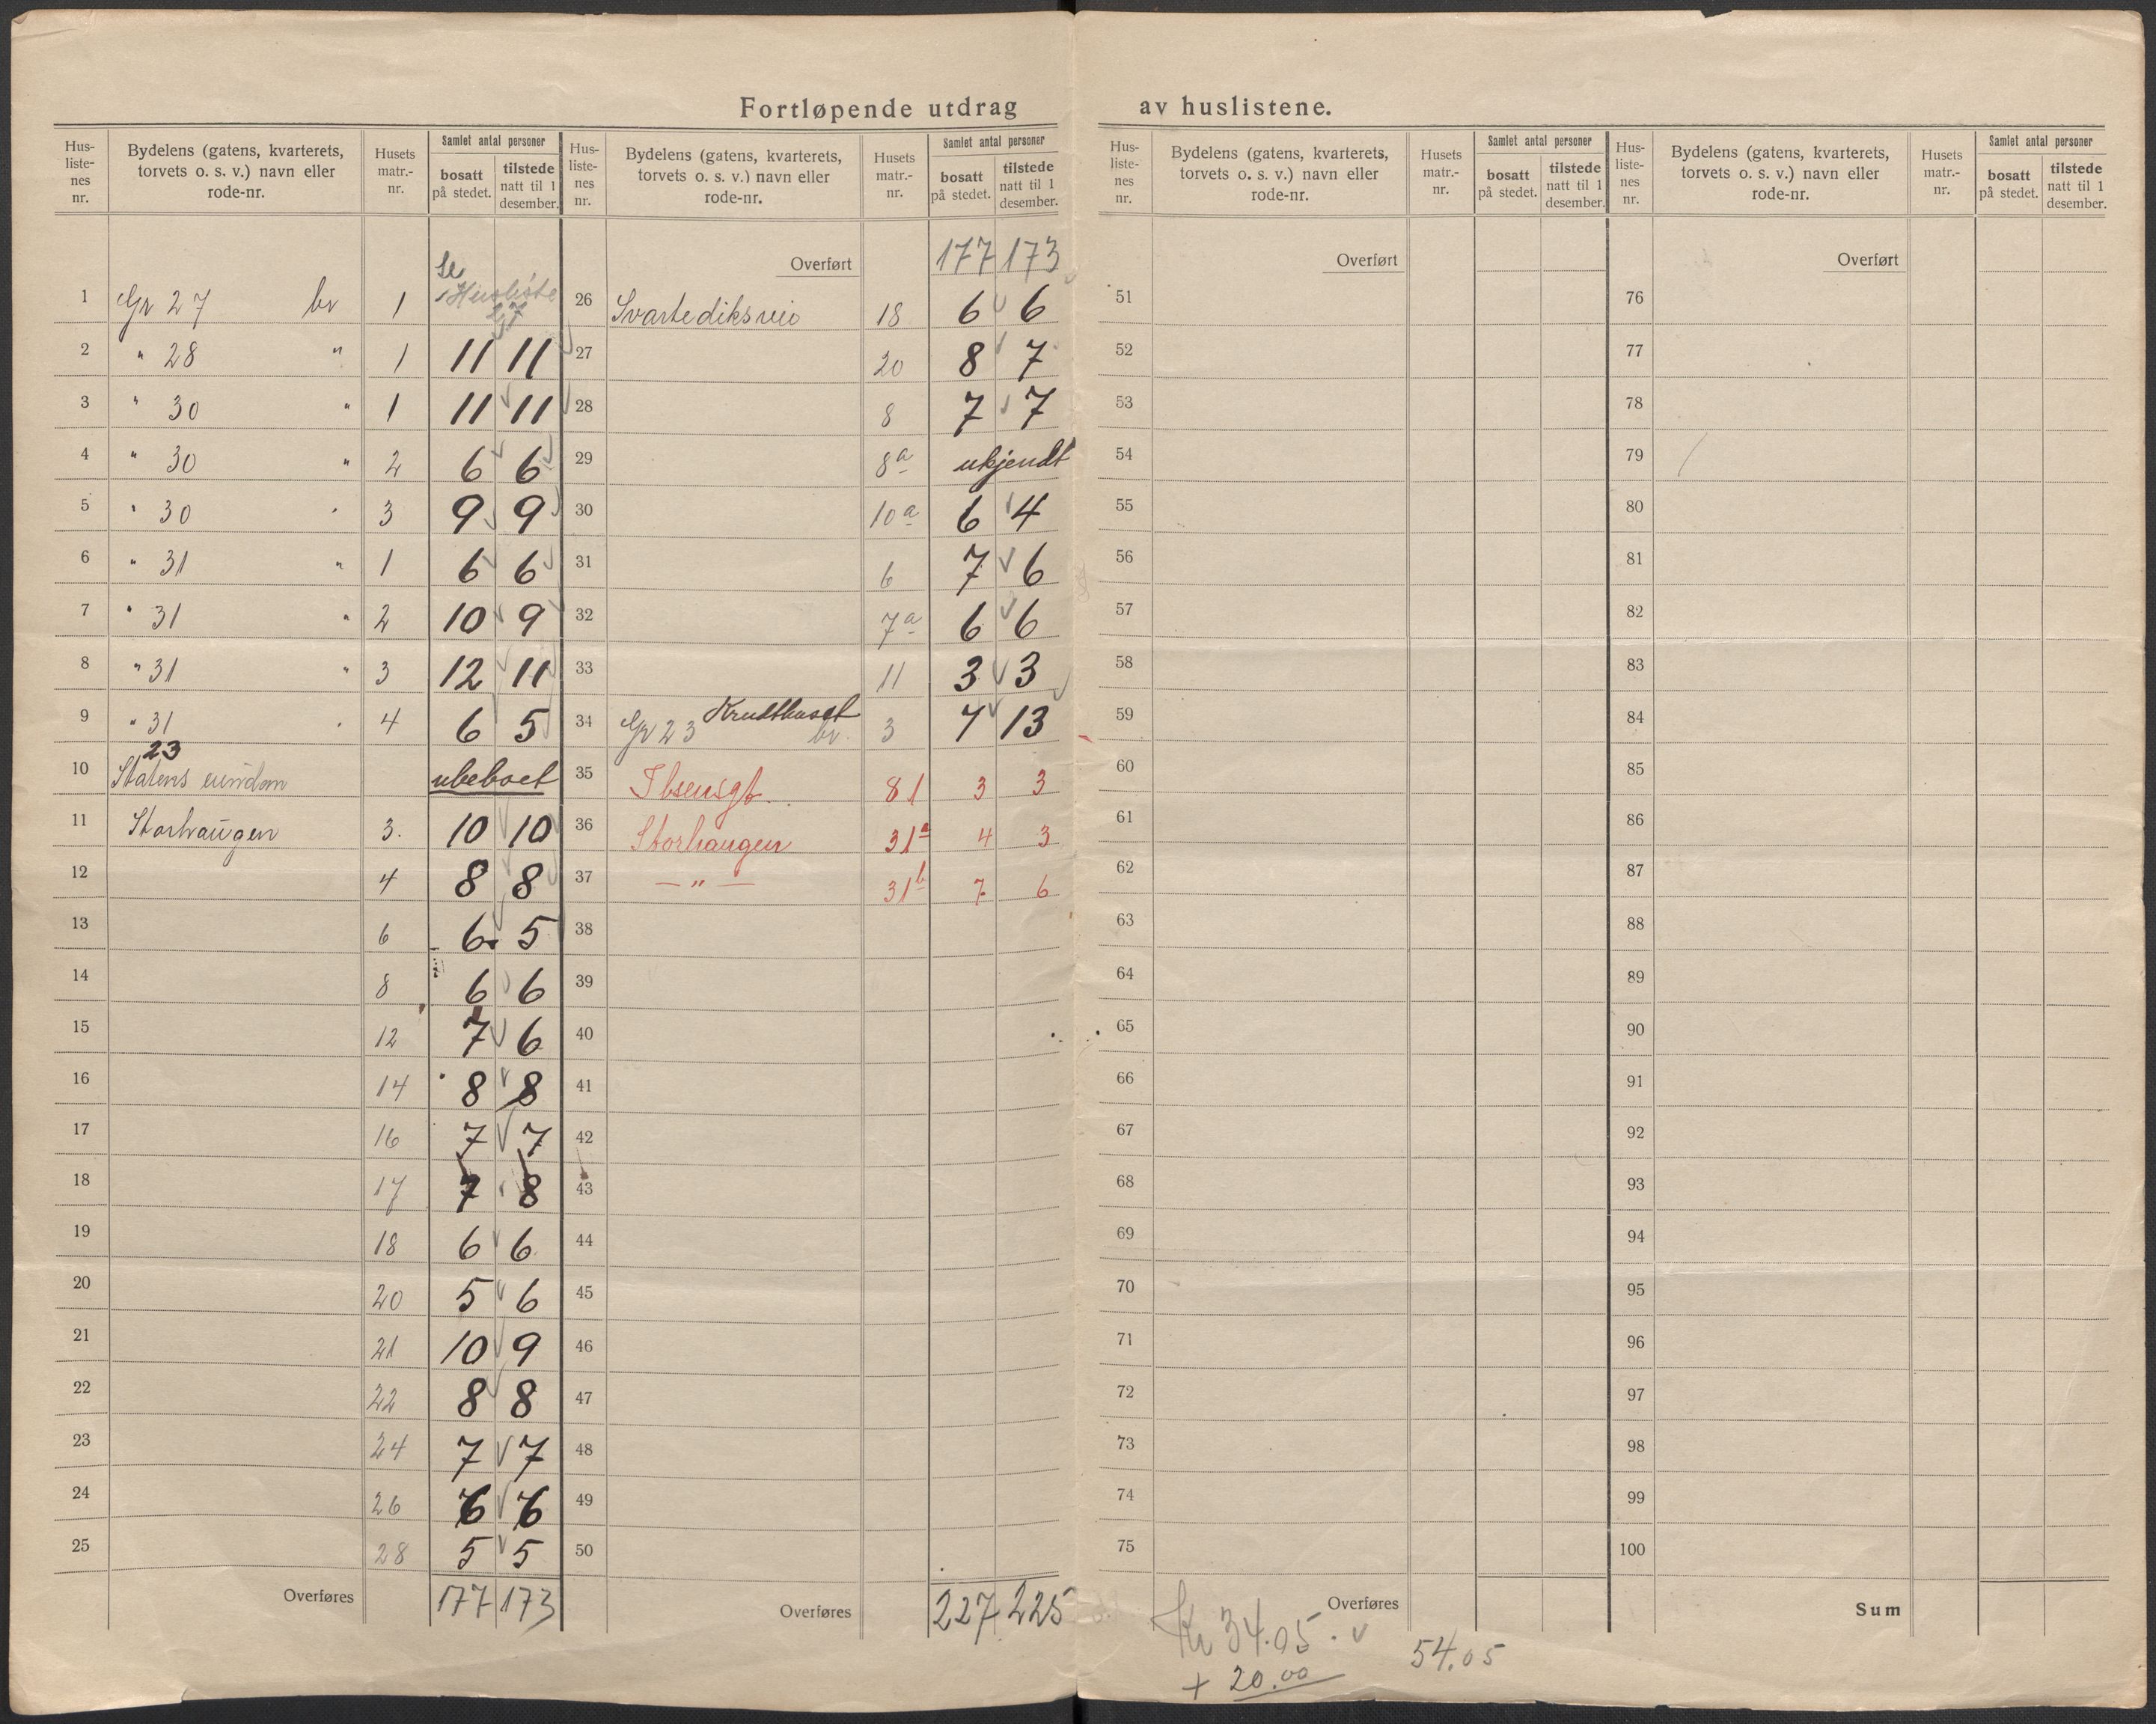 Fortløpende utdrag av huslistene.
Hus-listenes nr. | Bydelens (gatens, kvarterets, torvets o. s. v.) navn eller rode-nr. | Husets matr.-nr. | Samlet antal personer | bosatt på stedet. | tilstede natt til 1 desember.
Se Husliste
1 Gr 27 br 1
2 " 28 " 1 11 11
3 " 30 " 1 11 11
4 " 30 " 2 6 6
5 " 30 " 3 9 9
6 " 31 " 1 6 6
7 " 31 " 2 10 9
8 " 31 " 3 12 11
9 " 31 " 4 6 5
23
10 Statens eiendom ubeboet
11 Storhaugen 3. 10 10
12 4 8 8
13 6 6 5
14 8 6 6
15 12 7 6
16 14 8 8
17 16 7 7
18 17 7 8
19 18 6 6
20 20 5 6
21 21 10 9
22 22 8 8
23 24 7 7
24 26 6 6
25 28 5 5
Overføres 177 173
Hus-listenes nr. | Bydelens (gatens, kvarterets, torvets o. s. v.) navn eller rode-nr. | Husets matr.-nr. | Samlet antal personer | bosatt på stedet. | tilstede natt til 1 desember.
Overført 177 173
26 Svartediksvei 18 6 6
27 20 8 7
28 8 7 7
29 8a ukjendt
30 10a 6 4
31 6 7 6
32 7a 6 6
33 11 3 3
34 Gr 23 Krudthuset br. 3 7 13
35 Ibsensgt. 81 3 3
36 Storhaugen 31a 4 3
37 — " — 31b 7 6
38
39
40
41
42
43
44
45
46
47
48
49
50
Overføres 227 225
Hus-listenes nr. | Bydelens (gatens, kvarterets, torvets o. s. v.) navn eller rode-nr. | Husets matr.-nr. | Samlet antal personer | bosatt på stedet. | tilstede natt til 1 desember.
Overført
51
52
53
54
55
56
57
58
59
60
61
62
63
64
65
66
67
68
69
70
71
72
73
74
75
Overføres
Kr 34.05.
+ 20.00
54.05
Hus-listenes nr. | Bydelens (gatens, kvarterets, torvets o. s. v.) navn eller rode-nr. | Husets matr.-nr. | Samlet antal personer | bosatt på stedet. | tilstede natt til 1 desember.
Overført
76
77
78
79
80
81
82
83
84
85
86
87
88
89
90
91
92
93
94
95
96
97
98
99
100
Sum